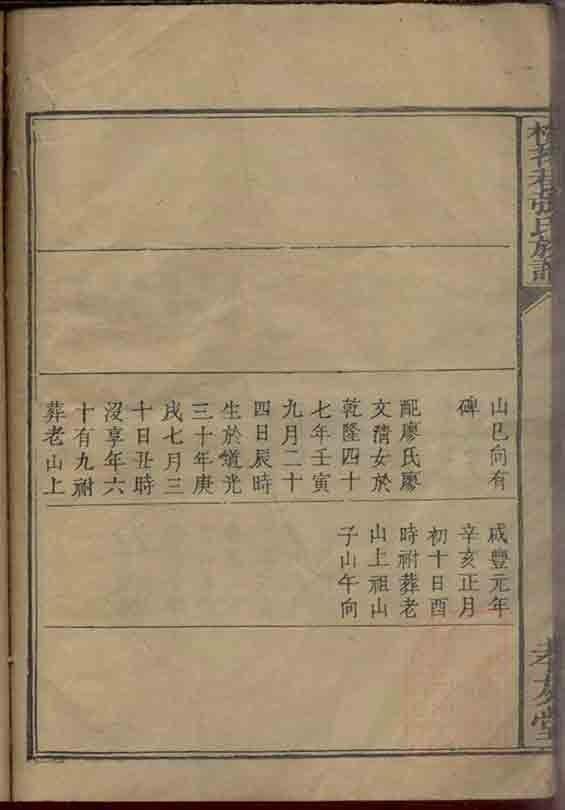 張氏族譜
孝友堂
山巳向有
碑
配廖氏廖
文清女於
乾隆四十
七年壬寅
九月二十
四日辰時
生於道光
三十年庚
戌七月三
十日丑時
沒享年六
十有九祔
葬老山上
咸豐元年
辛亥正月
初十日酉
時祔葬老
山上祖山
子山午向